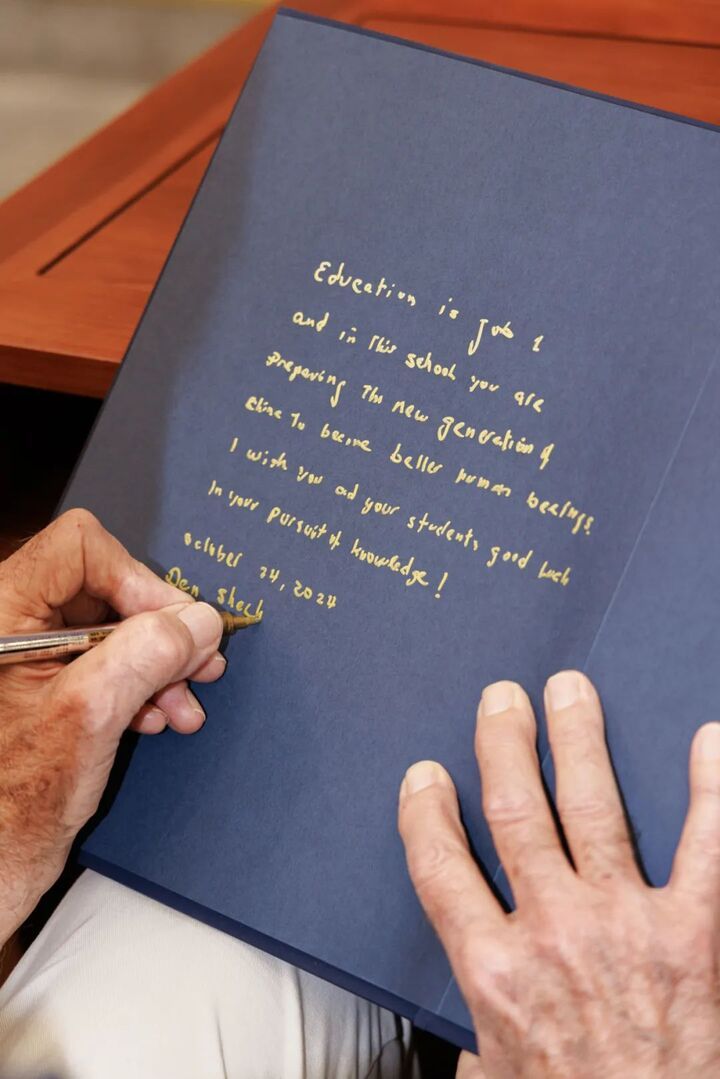 Education is Job 1
and in this school you are
preparing the new generation of
to become better human beeings.
I wish you ad your students good luck
in your pursuit of knowledge!
october 24, 2024
Dan Shech